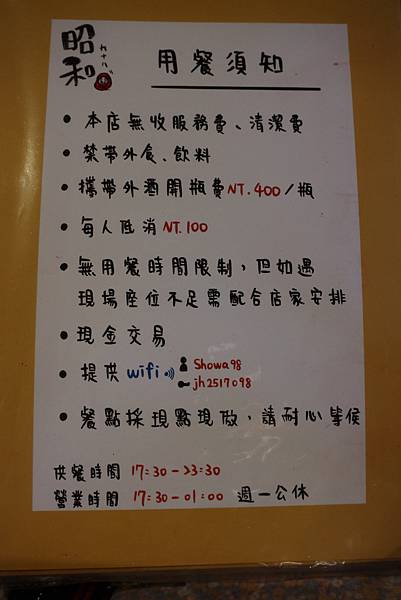 昭和
九十八
用餐須知
• 本店無收服務費、清潔費
• 禁帶外食、飲料
• 攜帶外酒開瓶費NT.400/瓶
• 每人低消NT.100
• 無用餐時間限制，但如遇
現場座位不足需配合店家安排
• 現金交易
• 提供 wifi Showa98
jh2517098
• 餐點採現點現做，請耐心等侯
供餐時間 17:30-23:30
營業時間 17:30-01:00 週一公休